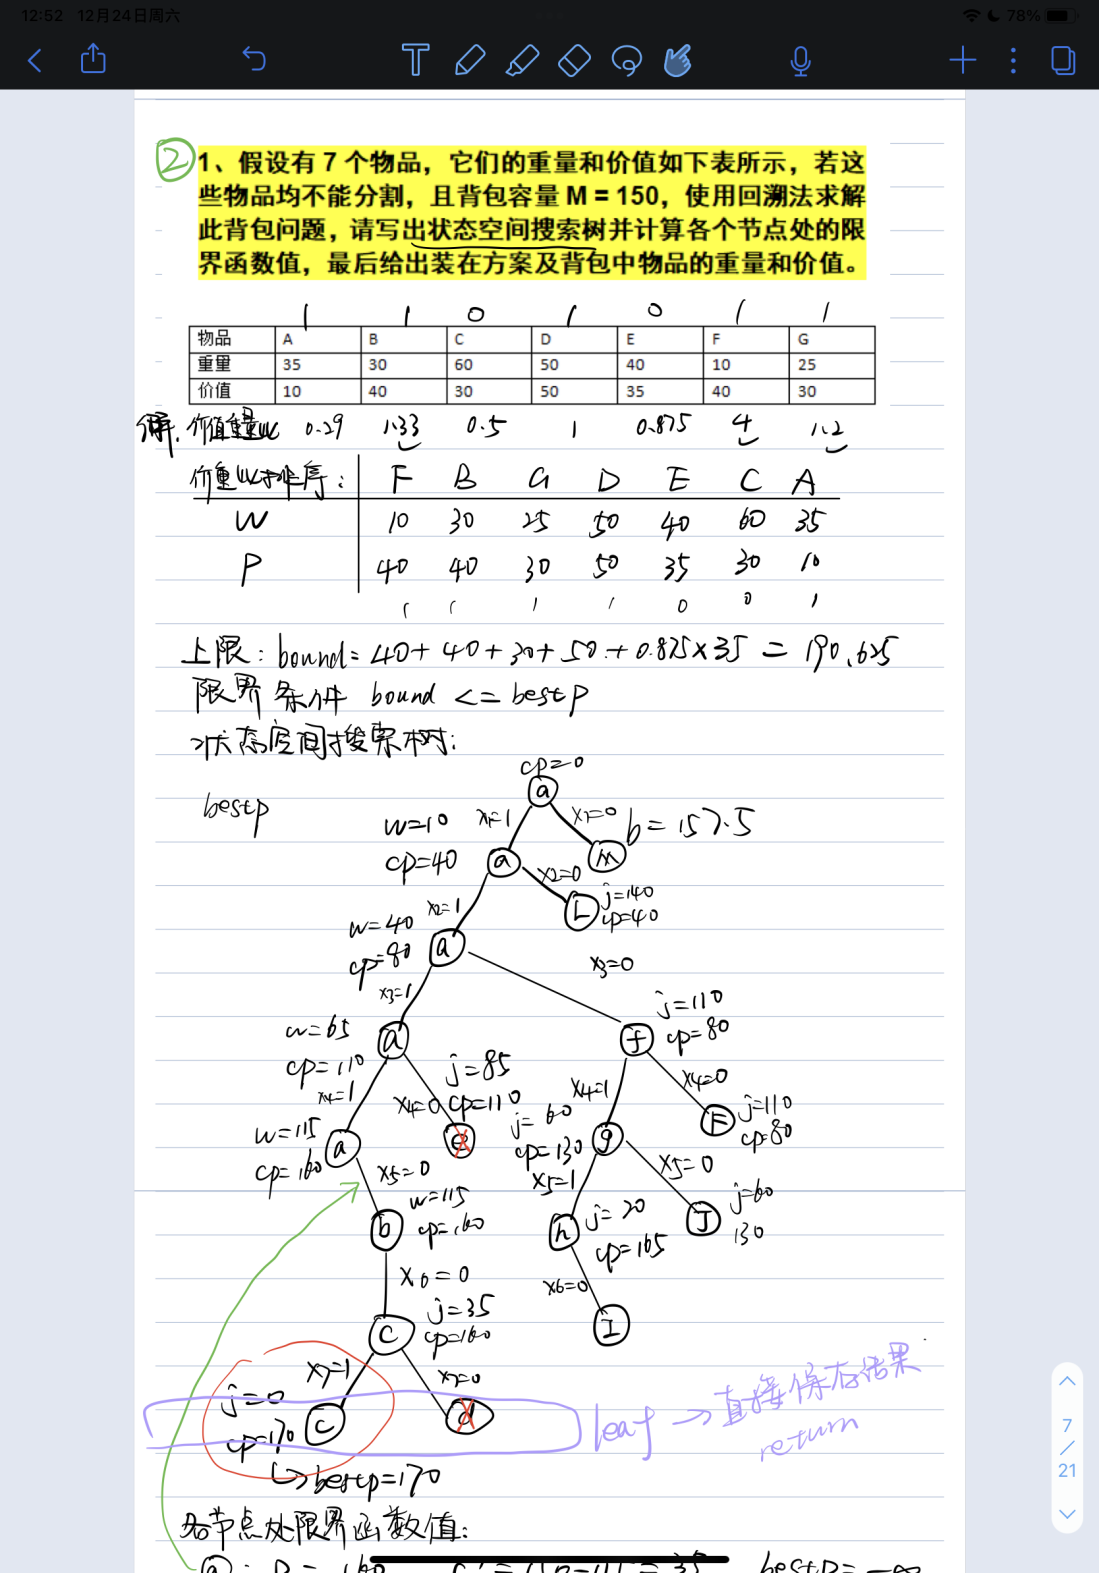 12:52 12月24日周六 78%
②
1、假设有 7 个物品，它们的重量和价值如下表所示，若这
些物品均不能分割，且背包容量 M = 150，使用回溯法求解
此背包问题，请写出状态空间搜索树并计算各个节点处的限
界函数值，最后给出装在方案及背包中物品的重量和价值。
1 1 0 1 0 1 1
物品 A B C D E F G
重量 35 30 60 50 40 10 25
价值 10 40 30 50 35 40 30
解. 价值重量比 0.29 1.33 0.5 1 0.875 4 1.2
价重比排序: F B G D E C A
W 10 30 25 50 40 60 35
P 40 40 30 50 35 30 10
1 1 1 1 0 0 1
上限: bound = 40+40+30+50+0.875×35 = 190.625
限界条件 bound <= bestp
状态空间搜索树:
cp=0
a
bestp
w=10 x1=1 x1=0 b=157.5
cp=40 a m
x2=0
x2=1 L j=140
cp=40
w=40
cp=80 a
x3=0
x3=1
j=110
w=65 a f cp=80
cp=110 j=85
x4=1 x4=0 cp=110 x4=1 x4=0
j=60 F j=110
w=115 a e cp=130 g cp=80
cp=160 x5=0 x5=1 x5=0
w=115 j=60
b cp=160 h j=20 J 130
cp=165
x6=0 x6=0
j=35 I
c cp=160
x7=1 x7=0
j=0
cp=170 c d
leaf → 直接保存结果
return
↳ bestp=170
各节点处限界函数值:
7
/
21